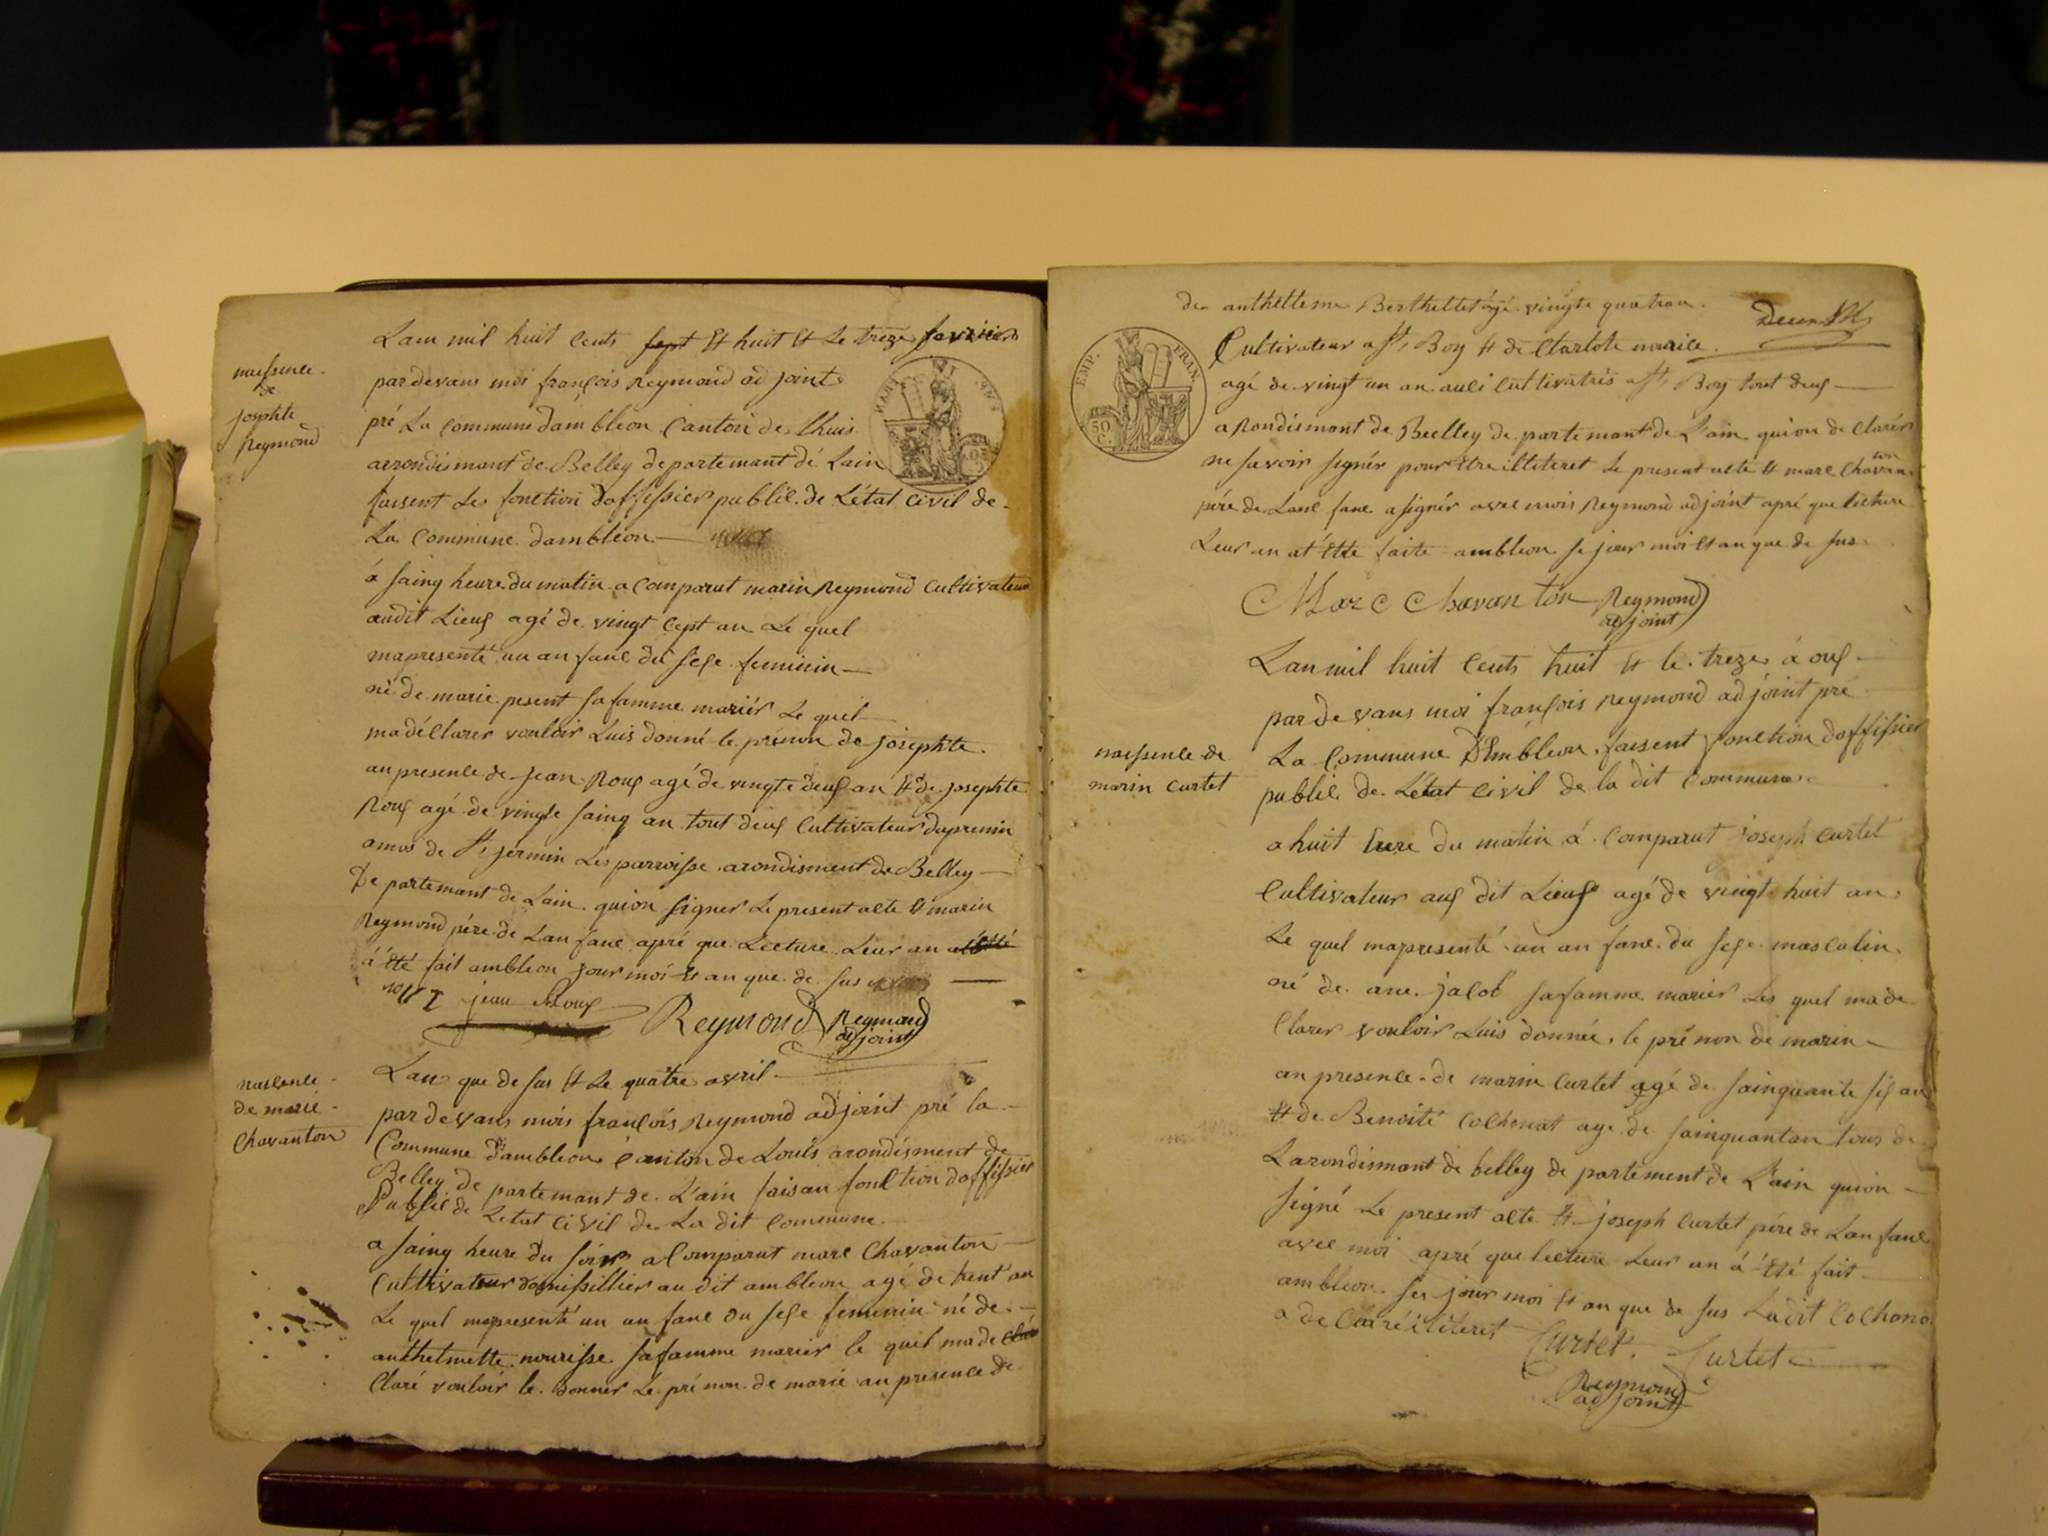 naissence
de
josephte
Reymond
Lan mil huit cents sept et huit et Le treze fevrier
pardevans moi françois Reymond adjoint
pré La Commune dambleon Canton de Lhuis
arondismant de Belley departemant dé Lain
faisent Les fonction doffessier publie de Létat Civil de
La Commune dambleon
á sainq heure du matin a comparut marin Reymond Cultivateur
audit Lieux agé de vingt cept an Le quel
mapresenté un anfanc du sexe feminin
né de marie pesent sa famme mariér Le quel
ma déClarer vouloir Luis donné le prénon de josephte.
an presence de jean Roux agé de vingte deux an et de josephte
Roux agé de vingte sainq an tout deux Cultivateur dapremin
amos de St jermin Les parroisse arondisment de Belley
De partemant de Lain quion signer Le present acte et marin
Reymond pére de Lanfanc apré que Lecture Leur an a étté
á étté fait ambleon jour moi et an que de sus
jean Roux
Reymond Reymond
adjoint
nascence
de marie
Chavanton
Lan que de sus et Le quatre avril
par devans mois françois Reymond adjoint pré la
Commune dambleon Canton de Louis arondisment de
Belley de partemant de L'ain faisan fonction doffisier
Publie de Letat Civil de La dit Commune.
a sainq heure du soir a Comparut marc Chavanton
Cultivateur domissillier au dit ambleon agé de trent an
Le quel mapresenté un anfanc du sexe femenin né de
anthelmette nourisse sa famme marier le quel ma de cla
Claré vouloir le donner Lé prénon de marie an presence de
de anthelleme Berthellet agé vingte quatran
deux
Cultivateur a St Boy et de Clarlote marice
agé de vingt un an auci Cultivatris a St Boy tout deux
arondismont de Beelley de partemant de L'ain quion de Clarér
ne savoir signér pour etre illiteret Le present acte et marc Chavan
ton
pére de Lanc fanc a signér avec mois Reymond adjoint apré que lecture
Leur an at étte faite ambleon se jour moi et an que de sus
Marc Chavanton Reymond
adjoint
Lan mil huit Cents huit et le treze á oux
par de vans moi françois Reymond adjoint pré
naissence de
marin Curtet
La Commune D'Ambleon faisent fonction doffisier
publie de Létat Civil de la dit Commune
a huit heure du matin á comparut joseph Curtet
Cultivateur aux dit Lieux agé de vingt huit an
Le quel mapresenté un anfanc du sexe masculin
né de ane jacob sa famme marier Les quel made
Clarer vouloir Luis donnée le prénon de marin
an presence de marin Curtet agé de sainquante six an
et de Benoité Cochonat age de sainquantan tous de
Larondismant de belley de partement de L'ain quion
signé Le present acte et joseph Curtet pére de Lanfanc
avec moi apré que lecture Leur an á étté fait
ambleon se jour moi et an que de sus Ladit Cochona
a de Claréé illiteret
Curtet. Curtet
Reymond
adjoint